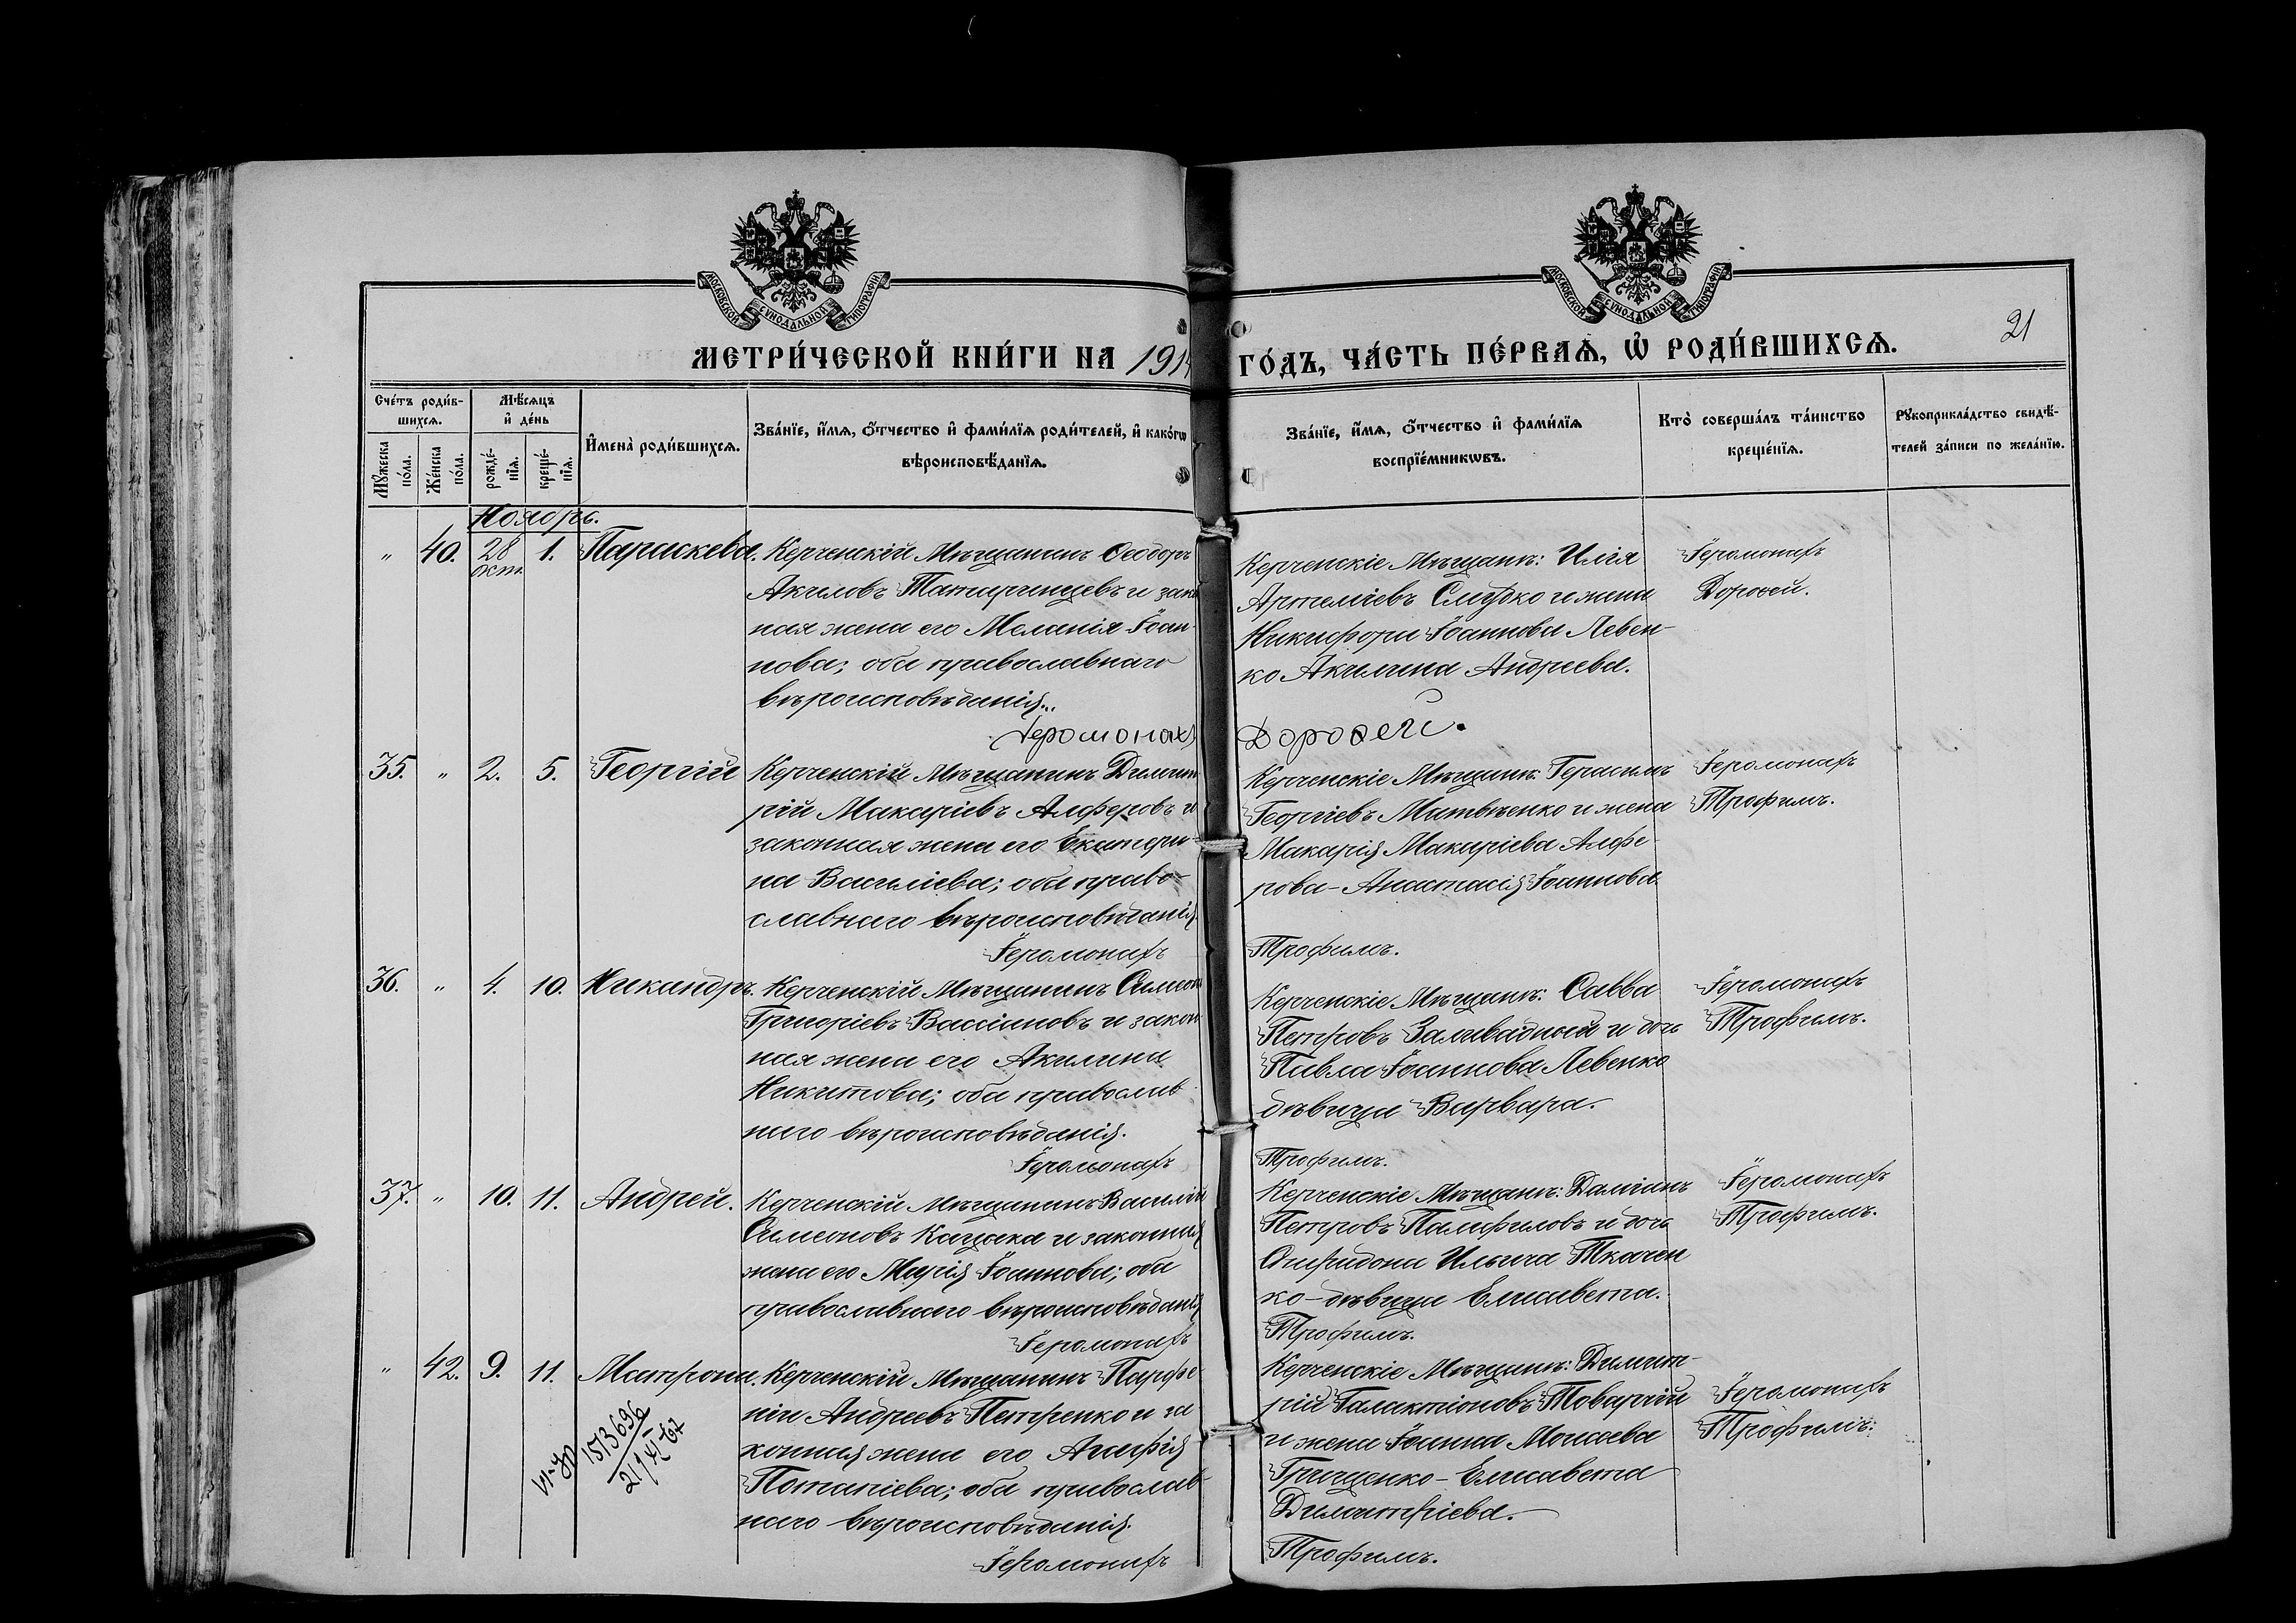 МОСКОВСКОЙ СУНОДАЛЬНОЙ ТИПОГРАФІИ
МОСКОВСКОЙ СУНОДАЛЬНОЙ ТИПОГРАФІИ
21
МЕТРИ́ЧЕСКОЙ КНИ́ГИ НА 1914 ГО́ДЪ, ЧА́СТЬ ПЕ́РВАѦ, Ѡ҆ РОДИ́ВШИХСѦ.
Сче́тъ роди́в-
шихсѧ.
Мꙋ́жеска по́ла.
Же́нска по́ла.
Мѣ́сѧцъ
и҆ де́нь
рожде́-
нїѧ.
креще́-
нїѧ.
И҆мена̀ роди́вшихсѧ.
Зва́нїе, и҆́мѧ, ѻ҆́тчество и҆ фами́лїѧ роди́телей, и҆ како́гѡ
вѣроисповѣ́данїѧ.
Зва́нїе, и҆́мѧ, ѻ҆́тчество и҆ фами́лїѧ
воспрїе́мникѡвъ.
Кто̀ соверша́лъ та́инство
креще́нїѧ.
Рꙋкоприкла́дство свидѣ́-
телей за́писи по жела́нїю.
Ноябрь.
" 40. 28 окт. 1. Параскева. Керченскій Мѣщанинъ Ѳеодоръ
Акиловъ Татаринцевъ и зако
ная жена его Меланія Іоан-
нова; оба православнаго
вѣроисповѣданія.
Керченскіе Мѣщане: Илія
Артеміевъ Слюдко и жена
Никифора Іоаннова Левен-
ко Акилина Андреева.
Іеромонахъ
Дороѳей.
Іеромонахъ Дороѳей.
35. " 2. 5. Георгій Керченскій Мѣщанинъ Димит
рій Макаріевъ Алферовъ и
законная жена его Екатери-
на Васильева; оба право-
славнаго вѣроисповѣданія
Керченскіе Мѣщане: Герасимъ
Георгіевъ Матвѣенко и жена
Макарія Макаріева Алфе
рова - Анастасія Іоаннова
Іеромонахъ
Трофимъ.
Іеромонахъ Трофимъ.
36. " 4. 10. Никандръ. Керченскій Мѣщанинъ Симеон
Григоріевъ Вассіановъ и закон
ная жена его Акилина
Никитова; оба православ
наго вѣроисповѣданія.
Керченскіе Мѣщане: Савва
Петровъ Заливадный и дочь
Павла Іоаннова Левенко
дѣвица Варвара.
Іеромонахъ
Трофимъ.
Іеромонахъ Трофимъ.
37. " 10. 11. Андрей. Керченскій Мѣщанинъ Василій
Симеоновъ Кацака и законная
жена его Марія Іоаннова; оба
православнаго вѣроисповѣданія
Керченскіе Мѣщане: Даміанъ
Петровъ Памфиловъ и дочь
Спиридона Ильича Ткачен
ко - дѣвица Елисавета.
Іеромонахъ
Трофимъ.
Іеромонахъ Трофимъ.
" 42. 9. 11. Матрона. Керченскій Мѣщанинъ Парфе-
ній Андреевъ Петренко и за
конная жена его Агафія
Потапіева; оба православ-
наго вѣроисповѣданія.
Керченскіе Мѣщане: Димит-
рій Галактіоновъ Товарчій
и жена Іоанна Моисеева
Грищенко - Елисавета
Димитріева.
Іеромонахъ
Трофимъ.
1513696
Іеромонахъ Трофимъ.